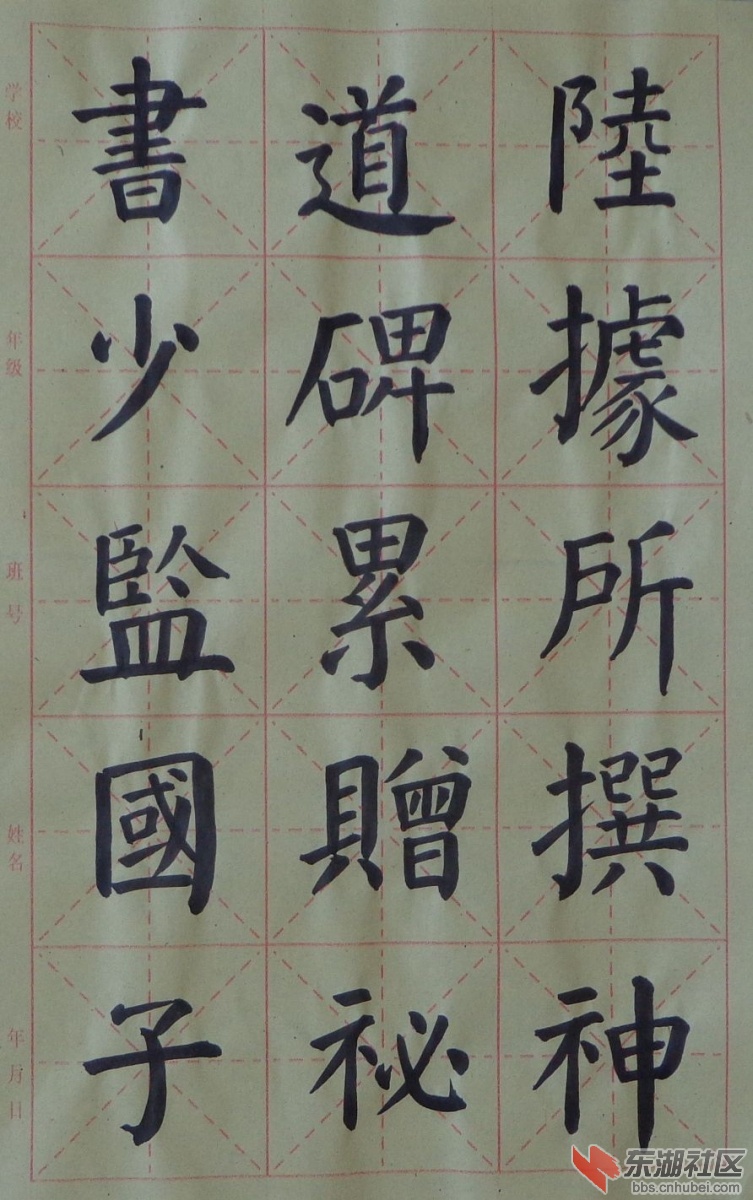 陸據所撰神
道碑累贈祕
書少監國子
学校
年级
班号
姓名
年月日
东湖社区
bbs.cnhubei.com